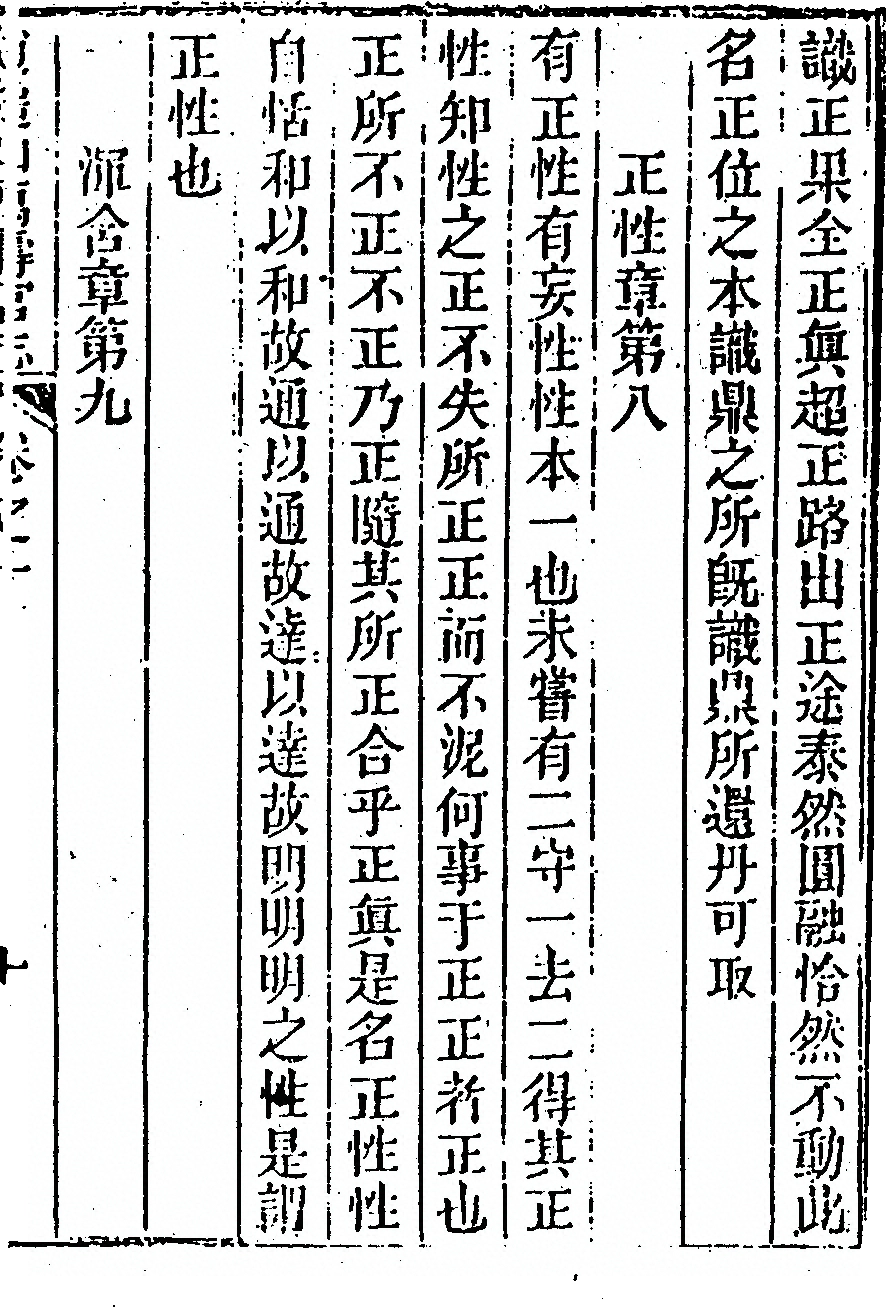 識正果全正眞超正路出正途泰然圓融恰然不動此
名正位之本識鼎之所既識鼎所還丹可取
正性章第八
有正性有妄性性本一也未嘗有二守一去二得其正
性知性之正不失所正正而不泥何事于正正者正也
正所不正不正乃正隨其所正合乎正眞是名正性性
自恬和以和故通以通故達以達故明明明之性是謂
正性也
淵含章第九